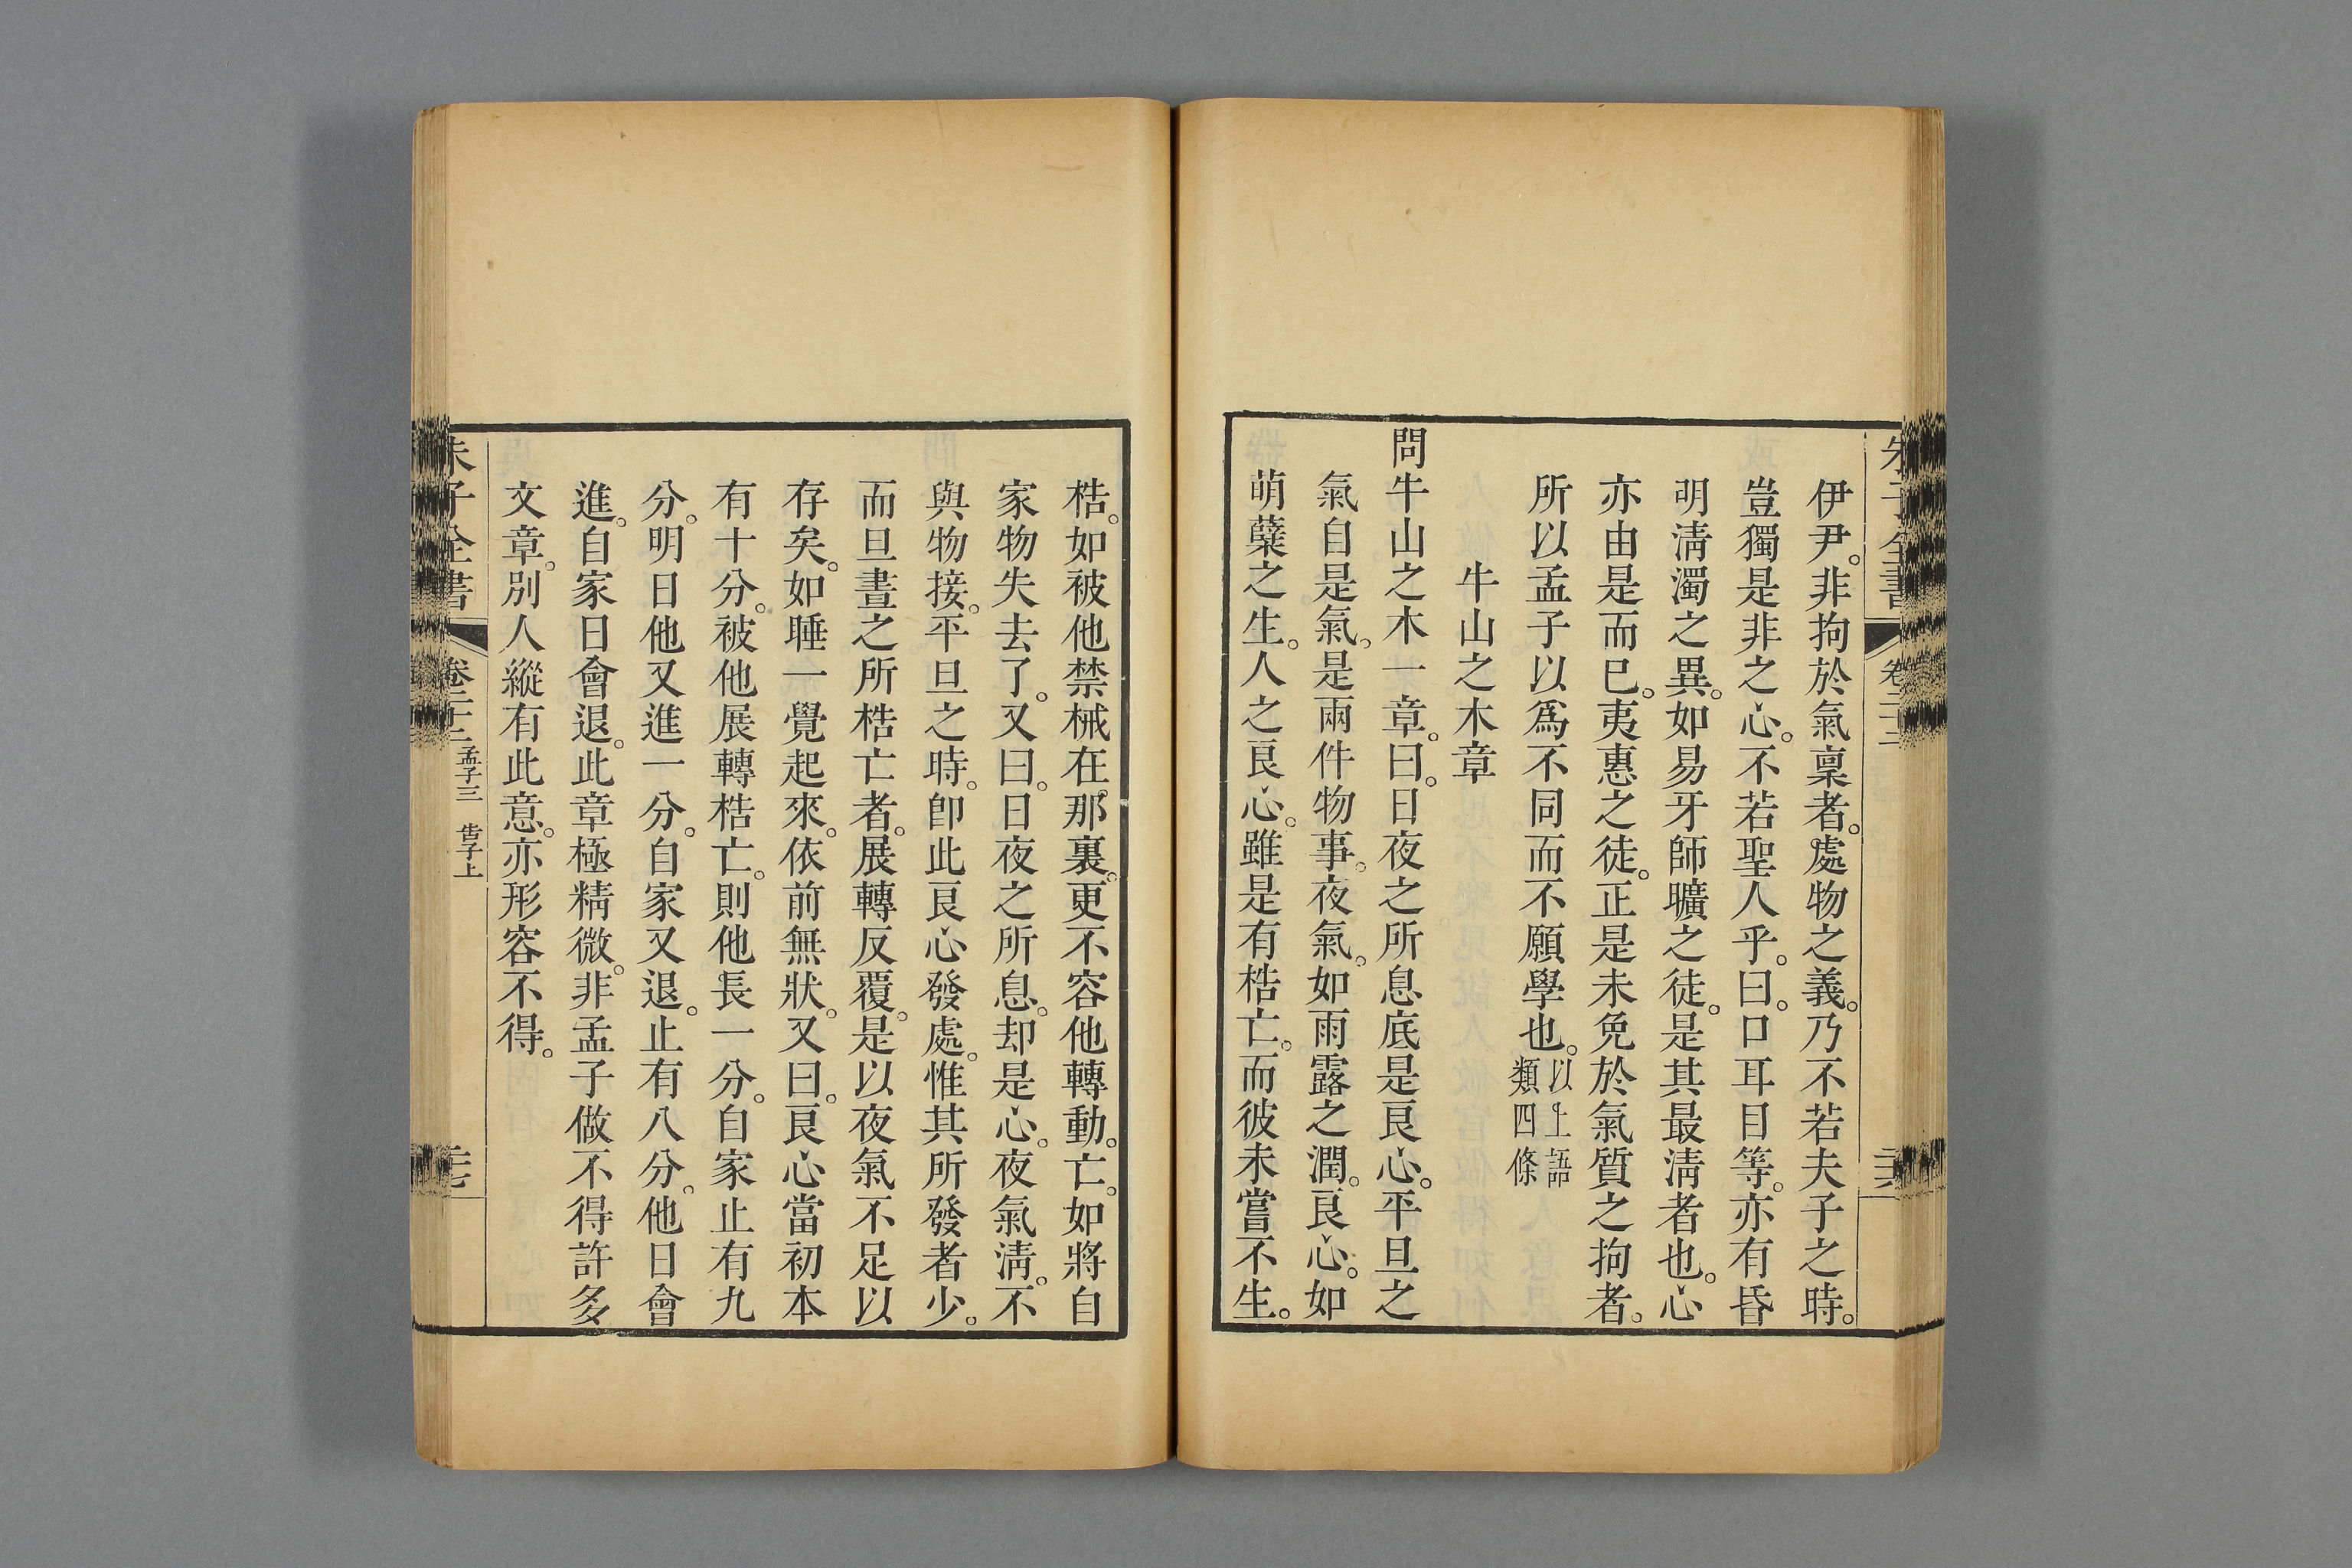 朱子全書 卷二十二 二六
伊尹。非拘於氣稟者。處物之義。乃不若夫子之時。
豈獨是非之心。不若聖人乎。曰。口耳目等。亦有昏
明淸濁之異。如易牙師曠之徒。是其最淸者也。心
亦由是而已。夷惠之徒。正是未免於氣質之拘者。
所以孟子以爲不同而不願學也。以上語類四條
牛山之木章
問牛山之木一章。曰。日夜之所息底是良心。平旦之
氣自是氣。是兩件物事。夜氣。如雨露之潤。良心。如
萌蘖之生。人之良心。雖是有梏亡。而彼未嘗不生。
梏。如被他禁械在那裏。更不容他轉動。亡。如將自
家物失去了。又曰。日夜之所息。却是心。夜氣淸。不
與物接。平旦之時。卽此良心發處。惟其所發者少。
而旦晝之所梏亡者。展轉反覆。是以夜氣不足以
存矣。如睡一覺起來。依前無狀。又曰。良心當初本
有十分。被他展轉梏亡。則他長一分。自家止有九
分。明日他又進一分。自家又退。止有八分。他日會
進。自家日會退。此章極精微。非孟子做不得許多
文章。別人縱有此意。亦形容不得。
朱子全書 卷二十二 孟子三 告子上 二七